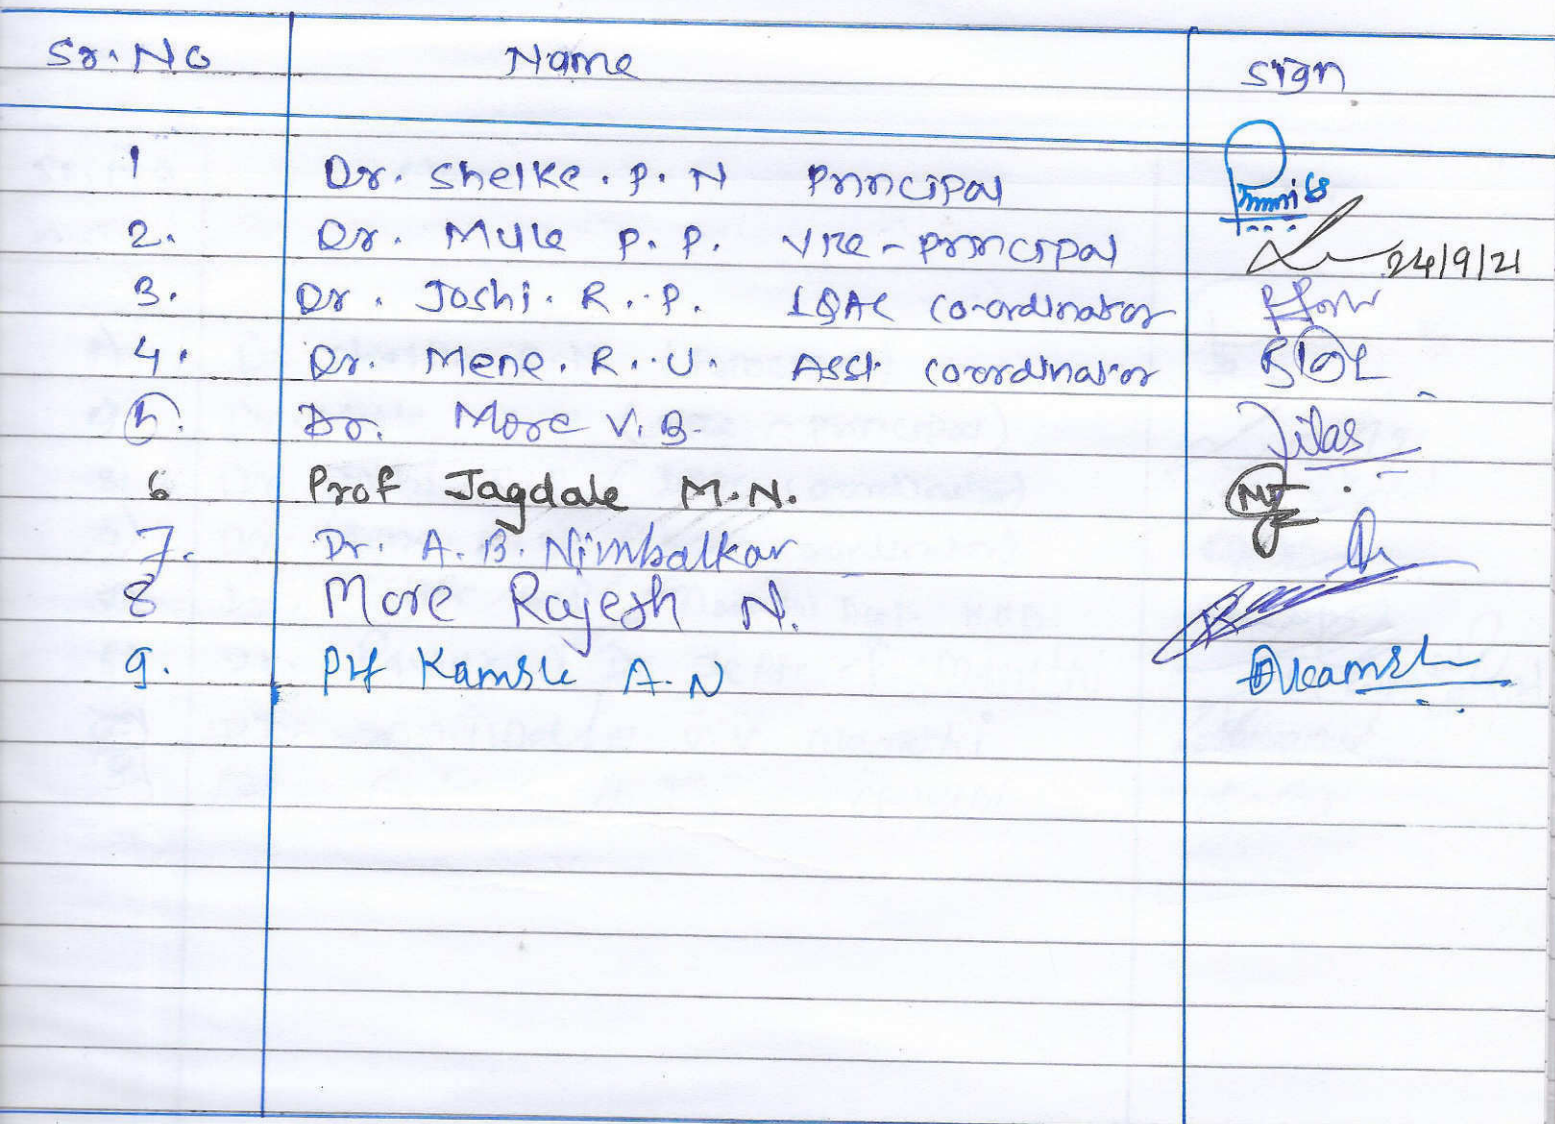 Sr. No Name Sign
1 Dr. Shelke . P. N Principal
2. Dr. Mule P. P. Vice-principal 24/9/21
3. Dr. Joshi. R. P. IQAC Co-ordinator
4. Dr. Mene. R. U. Asst. coordinator
5. Dr. More V. B. Vilas
6 Prof Jagdale M. N.
7. Dr. A. B. Nimbalkar
8 More Rajesh N.
9. Kamble A. N